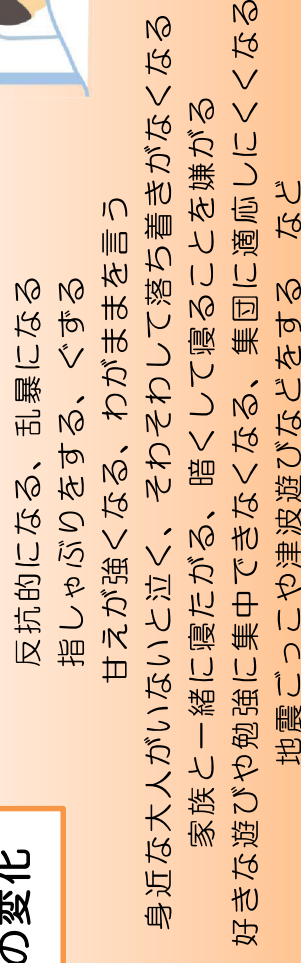 の変化
反抗的になる、乱暴になる
指しゃぶりをする、ぐずる
甘えが強くなる、わがままを言う
身近な大人がいないと泣く、そわそわして落ち着きがなくなる
家族と一緒に寝たがる、暗くして寝ることを嫌がる
好きな遊びや勉強に集中できなくなる、集団に適応しにくくなる
地震ごっこや津波遊びなどをする　など